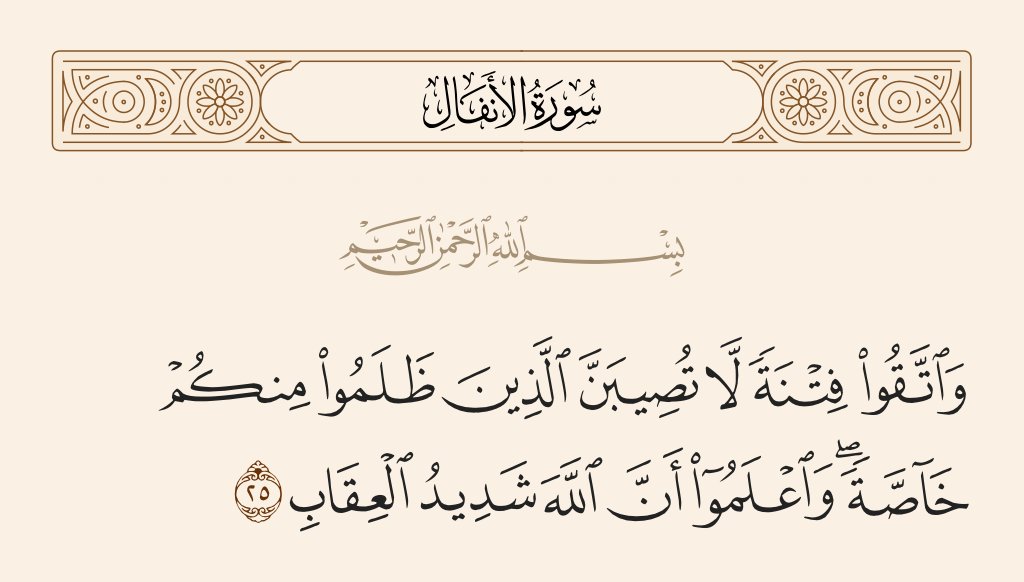 سُورَةُ الأَنفَالِ
بِسْمِ ٱللَّهِ ٱلرَّحْمَٰنِ ٱلرَّحِيمِ
وَٱتَّقُوا۟ فِتْنَةًۭ لَّا تُصِيبَنَّ ٱلَّذِينَ ظَلَمُوا۟ مِنكُمْ
خَآصَّةًۭ ۖ وَٱعْلَمُوٓا۟ أَنَّ ٱللَّهَ شَدِيدُ ٱلْعِقَابِ ٢٥